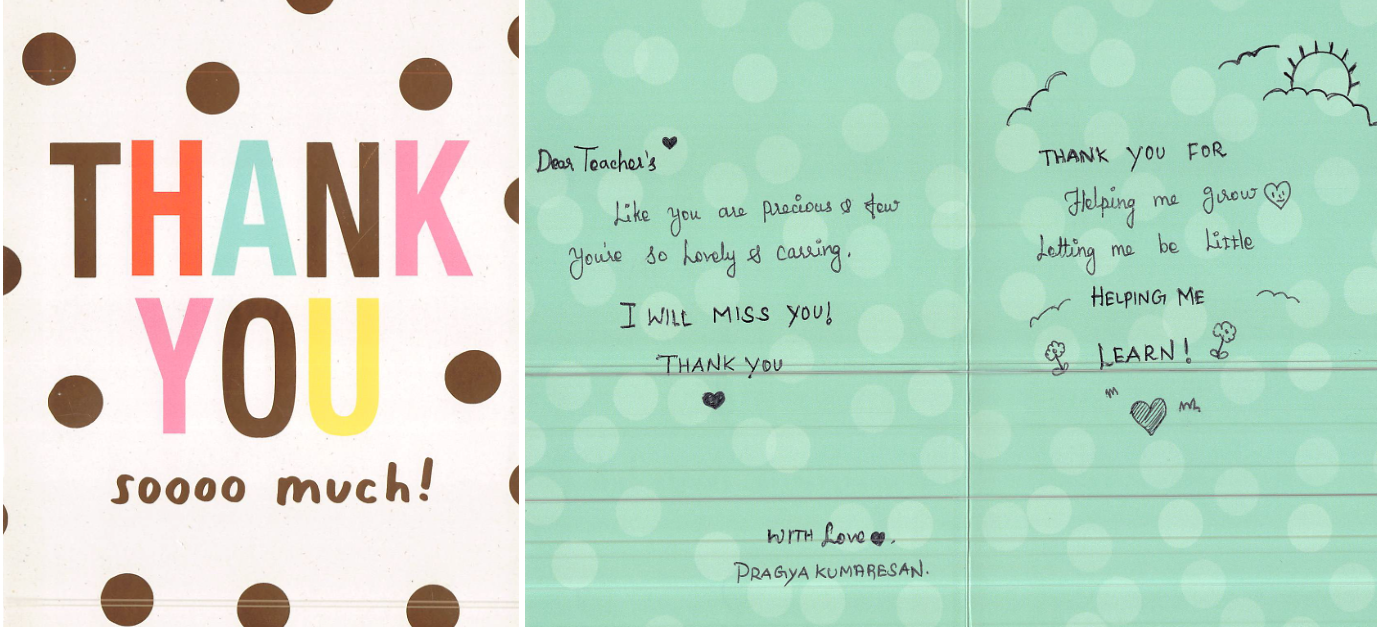 THANK
YOU
soooo much!
Dear Teacher's
Like you are precious & few
You're so Lovely & carring.
I WILL MISS YOU!
THANK YOU
WITH Love
PRAGYA KUMARESAN.
THANK YOU FOR
Helping me grow
Letting me be Little
HELPING ME
LEARN!